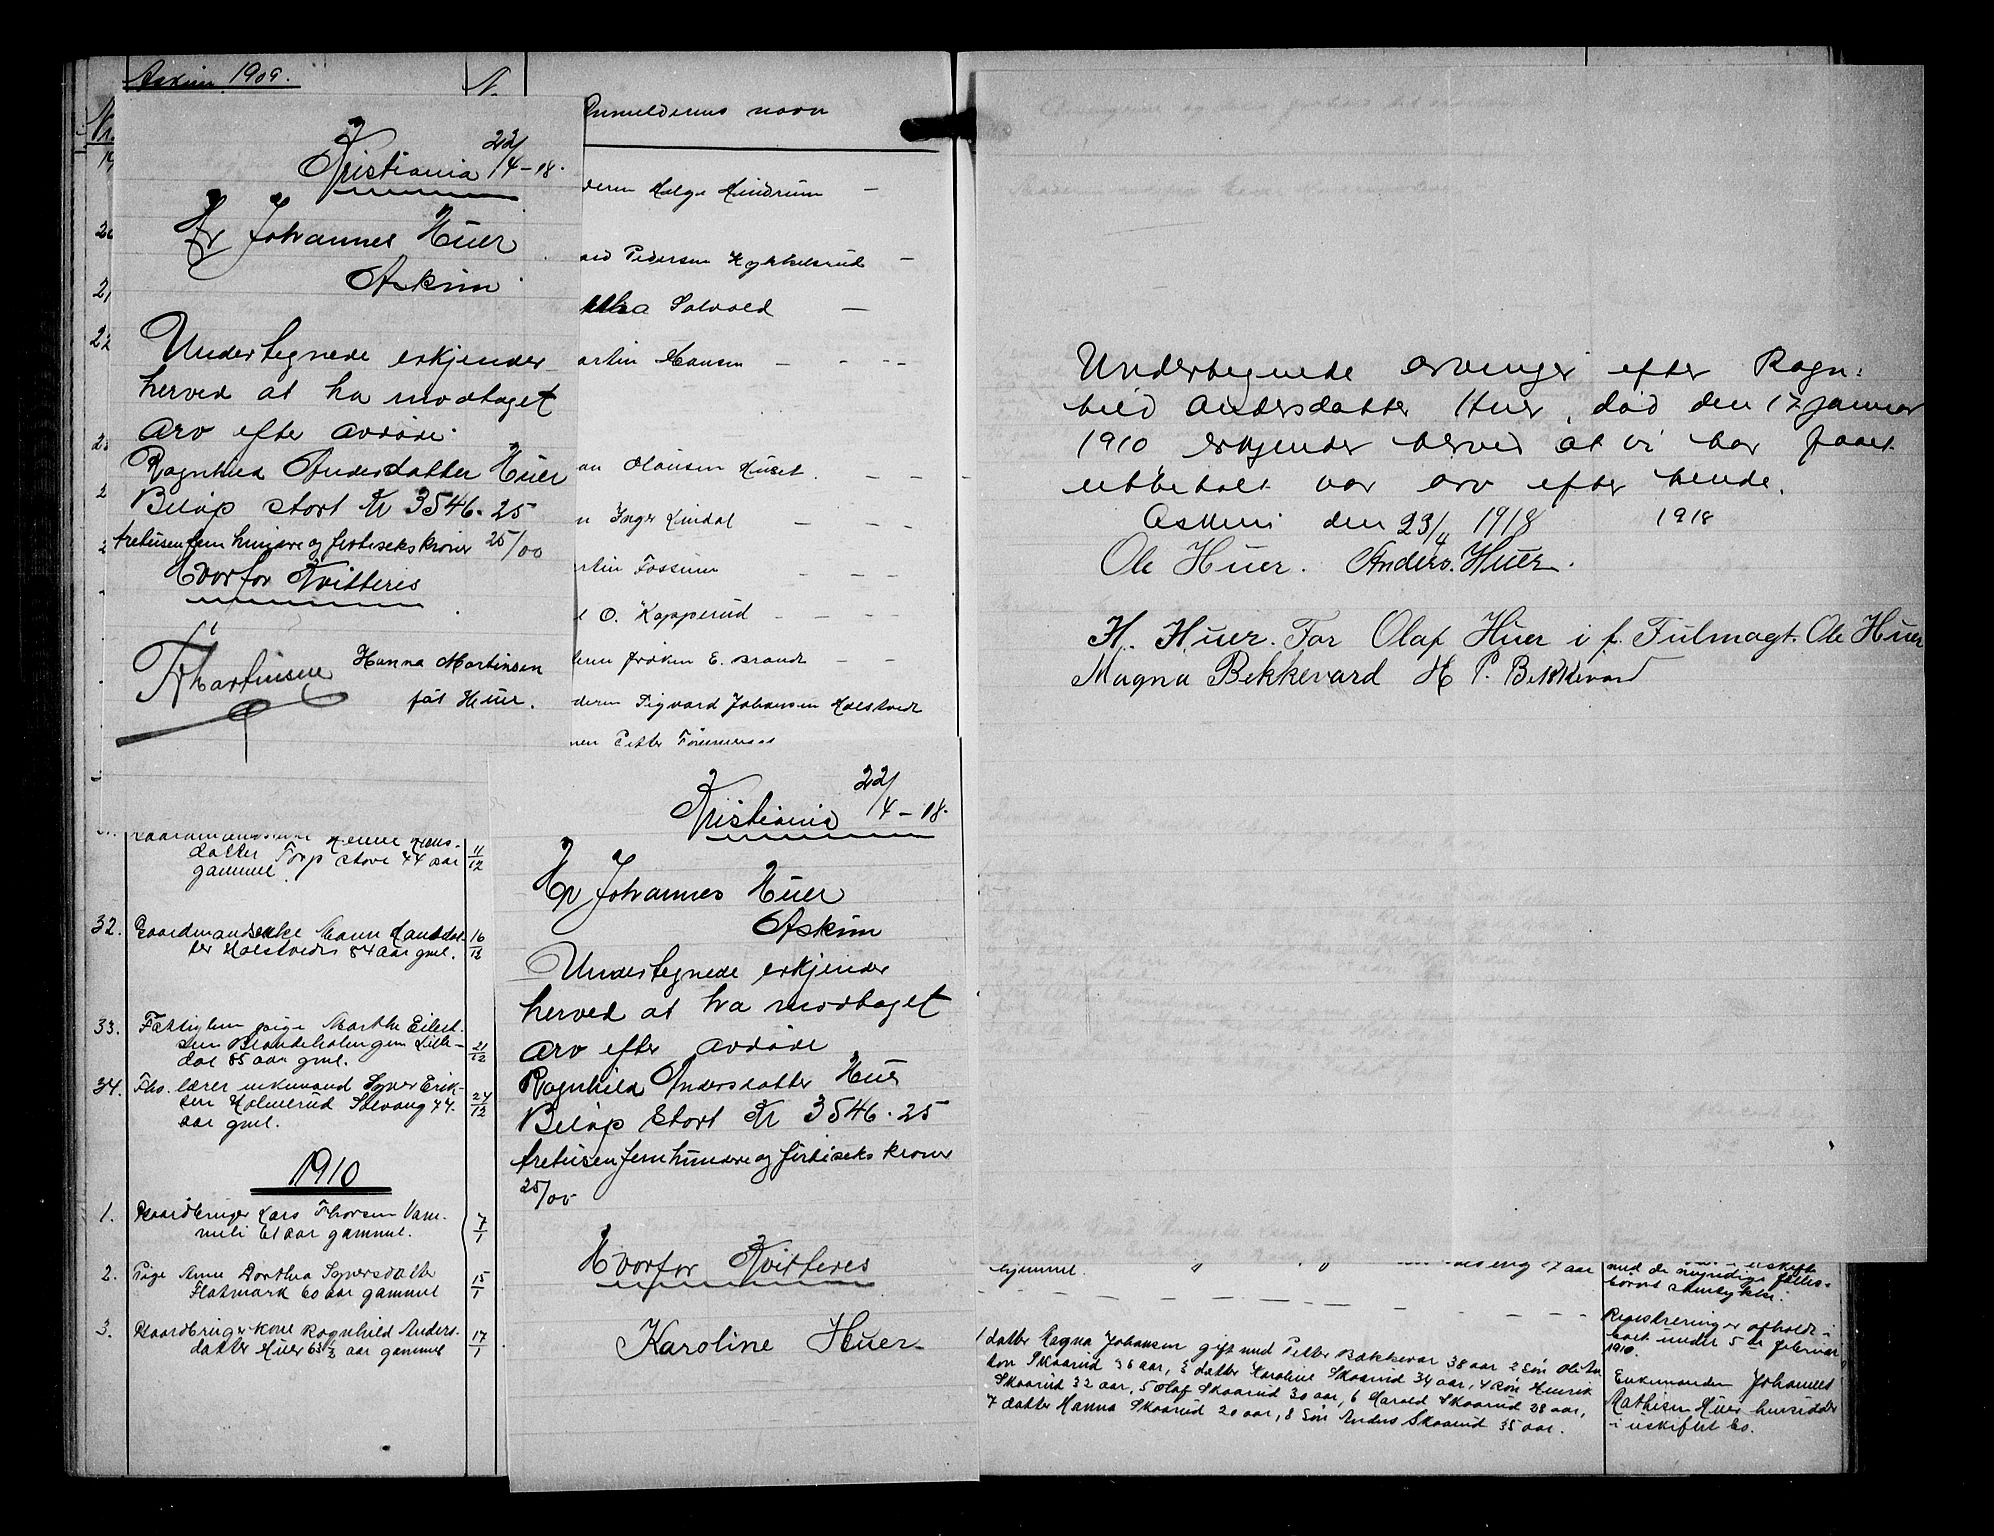 Askim 1909.
N.
Anmelderens navn
Nr.
Kristiania 22/4-18.
Hr Johannes Huer
Askim
Undertegnede erkjender
herved at ha modtaget
arv efter avdøde
Ragnhild Andersdatter Huer
Beløp stort Kr 3546.25
tretusenfemhundre og førtiseks kroner 25/00
Hvorfor Kvitteres
Hanna Martinsen
føt Huer.
deren Helge Mindrum
Pedersen Kykkelsrud
Solvold
artin Hansen
Olausen Huset
n Inger Lindal
rtin Fossum
O. Kopperud
deren frøken E. Brandt
deren Sigvard Johansen Holstvedt
nen Petter
datter Torp stove 44 aar
gammel.
11/12
32. Gaardmandsenke
ter Holstvedt 84 aar gml.
16/12
33. Fattiglem pige Marthe Eilert-
dal 85 aar gml.
21/12
34. Fhv. lærer enkemand Syver Erik-
sen Holmerud Solvang 44.
aar gml.
24/12
1910
1. Gaardbruger Lars Thorsen Vam-
meli 61 aar gammel.
7/1
2. Pige Anne Dorthea Syversdatter
Flatmark 60 aar gammel
15/1
3. Gaardbruger kone Ragnhild Anders-
datter Huer 63½ aar gammel
17/1
Kristiania 22/4-18.
Hr Johannes Huer
Askim
Undertegnede erkjender
herved at ha modtaget
arv efter avdøde
Ragnhild Andersdatter Huer
Beløp stort Kr 3546.25
tretusenfemhundre og førtiseks kroner
25/00
Hvorfor Kvitteres
Karoline Huer
Undertegnede arvinger efter Ragn-
hild Andersdatter Huer, død den 17 januar
1910 erkjender herved at vi har faaet
utbetalt vor arv efter hende.
Askim den 23/4 1918 1918
Ole Huer. Anders. Huer.
H. Huer. For Olaf Huer i f. Fulmagt. Ole Huer
Magna Bekkevard H P. Bekkevard
hjemmel.
17 aar
i uskifte
med de myndige fælles-
børns samtykke.
1 datter Magna Johansen gift med Petter Bækkevar 38 aar 2 søn Ole An
ton Skaarud 36 aar, 3 datter Karoline Skaarud 34 aar, 4 søn Henrik
Skaarud 32 aar, 5 Olaf Skaarud 30 aar, 6 Harald Skaarud 28 aar,
7 datter Hanna Skaarud 20 aar, 8 søn Anders Skaarud 35 aar.
Registrering afholdt i
boet under 5te februar
1910.
Enkemanden Johannes
Mathisen Huer hensidder
i uskiftet bo.